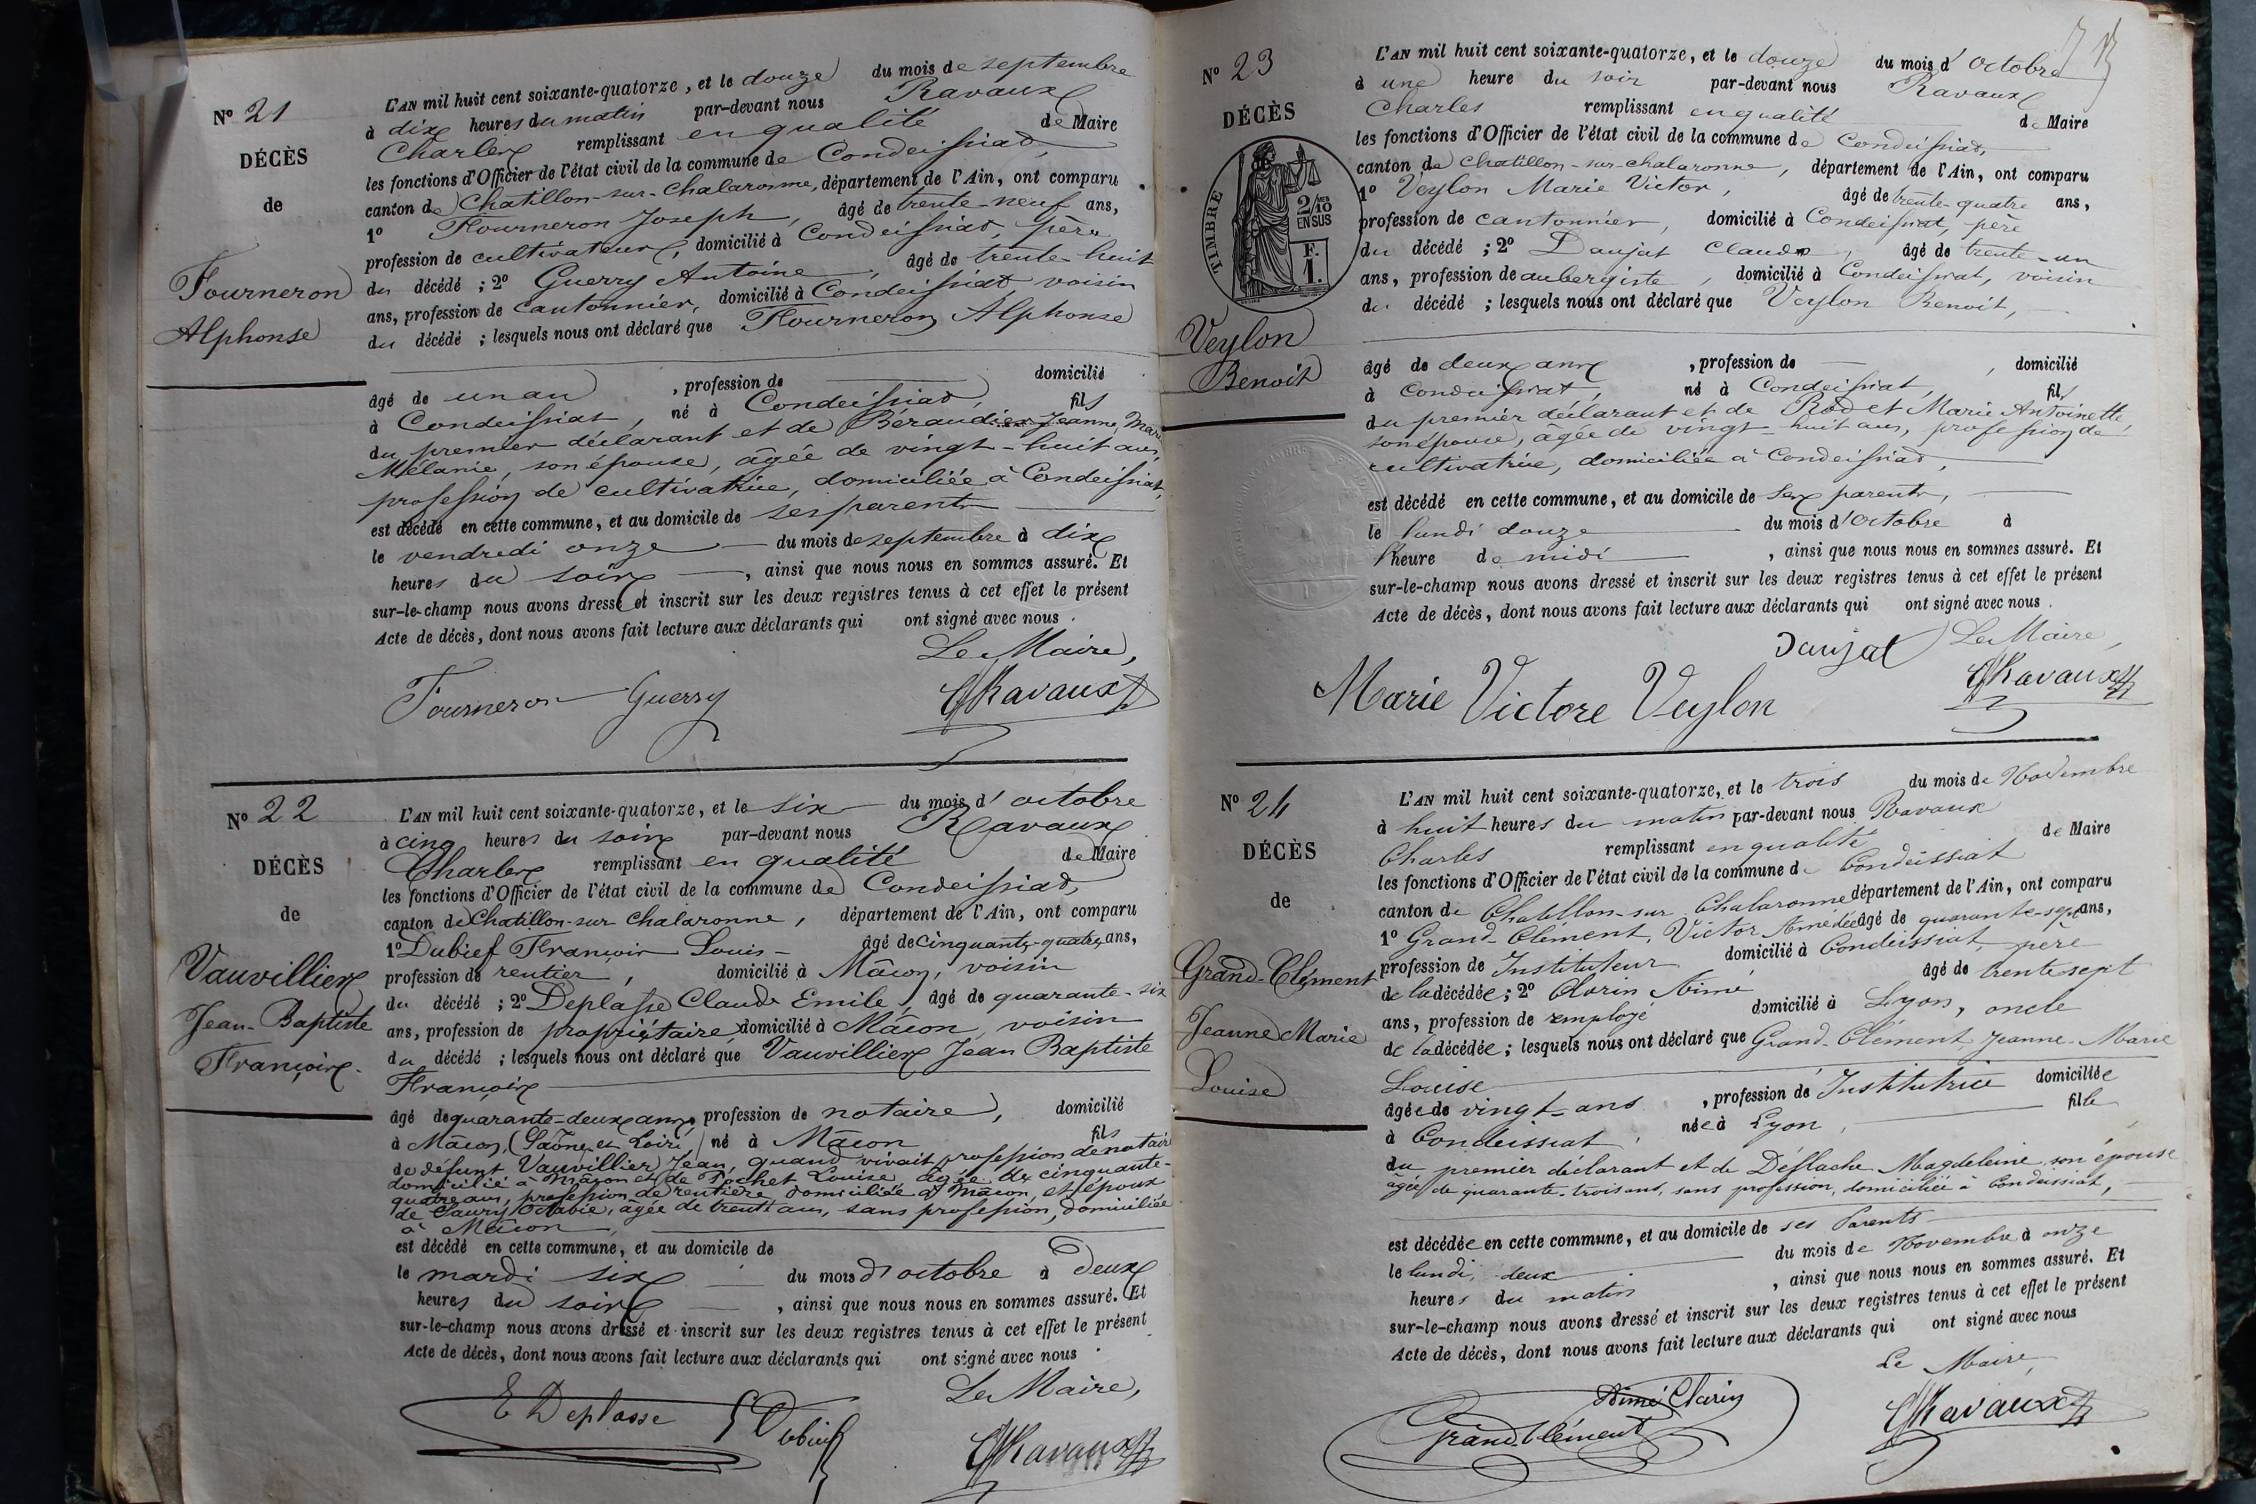 N° 21
DÉCÈS
de
Fourneron
Alphonse
L'AN mil huit cent soixante-quatorze, et le douze du mois de septembre
à dix heures du matin par-devant nous Ravaux
Charles remplissant en qualité de Maire
les fonctions d'Officier de l'état civil de la commune de Condeissiat,
canton de Chatillon-sur-Chalaronne, département de l'Ain, ont comparu
1° Fourneron Joseph, âgé de trente-neuf ans,
profession de cultivateur, domicilié à Condeissiat, père
du décédé ; 2° Guerry Antoine, âgé de trente-huit
ans, profession de cantonnier, domicilié à Condeissiat voisin
du décédé ; lesquels nous ont déclaré que Fourneron Alphonse
âgé de un an, profession de domicilié
à Condeissiat, né à Condeissiat, fils
du premier déclarant et de Béraudier Jeanne, Marie
Mélanie, son épouse, âgée de vingt-huit ans,
profession de cultivatrice, domiciliée à Condeissiat,
est décédé en cette commune, et au domicile de ses parents
le vendredi onze du mois de septembre à dix
heures du soir, ainsi que nous nous en sommes assuré. Et
sur-le-champ nous avons dressé et inscrit sur les deux registres tenus à cet effet le présent
Acte de décès, dont nous avons fait lecture aux déclarants qui ont signé avec nous.
Le Maire,
Fourneron Guerry Ravaux
N° 22
DÉCÈS
de
Vauvillier
Jean-Baptiste
François
L'AN mil huit cent soixante-quatorze, et le six du mois d'octobre
à cinq heures du soir par-devant nous Ravaux
Charles remplissant en qualité de Maire
les fonctions d'Officier de l'état civil de la commune de Condeissiat,
canton de Chatillon-sur Chalaronne, département de l'Ain, ont comparu
1° Dubief François Louis âgé de cinquante-quatre ans,
profession de rentier, domicilié à Mâcon, voisin
du décédé ; 2° Deplasse Claude Emile, âgé de quarante-six
ans, profession de propriétaire, domicilié à Mâcon, voisin
du décédé ; lesquels nous ont déclaré que Vauvillier Jean Baptiste
François
âgé de quarante-deux ans, profession de notaire, domicilié
à Mâcon, (Saône et Loire) né à Mâcon fils
de défunt Vauvillier Jean, quand vivait profession de notaire
domicilié à Mâcon et de Pochet Louise âgée de cinquante-
quatre ans, profession de rentière, domiciliée à Mâcon, et époux
de Saury Octavie, âgée de trente ans, sans profession, domiciliée
à Mâcon,
est décédé en cette commune, et au domicile de
le mardi six du mois d'octobre à deux
heures du soir, ainsi que nous nous en sommes assuré. Et
sur-le-champ nous avons dressé et inscrit sur les deux registres tenus à cet effet le présent
Acte de décès, dont nous avons fait lecture aux déclarants qui ont signé avec nous.
Le Maire,
E Deplasse Dubief Ravaux
N° 23
DÉCÈS
TIMBRE
2/10 EN SUS
F. 1.
Veylon
Benoit
L'AN mil huit cent soixante-quatorze, et le douze du mois d'octobre
à une heure du soir par-devant nous Ravaux
Charles remplissant en qualité de Maire
les fonctions d'Officier de l'état civil de la commune de Condeissiat,
canton de Chatillon-sur-Chalaronne, département de l'Ain, ont comparu
1° Veylon Marie Victor, âgé de trente-quatre ans,
profession de cantonnier, domicilié à Condeissiat, père
du décédé ; 2° Daujat Claude, âgé de trente-un
ans, profession de aubergiste, domicilié à Condeissiat, voisin
du décédé ; lesquels nous ont déclaré que Veylon Benoit,
âgé de deux ans, profession de, domicilié
à Condeissiat, né à Condeissiat, fils
du premier déclarant et de Marie Antoinette,
son épouse, âgée de vingt-huit ans, profession de
cultivatrice, domiciliée à Condeissiat,
est décédé en cette commune, et au domicile de ses parents,
le lundi douze du mois d'octobre à
l'heure de midi, ainsi que nous nous en sommes assuré. Et
sur-le-champ nous avons dressé et inscrit sur les deux registres tenus à cet effet le présent
Acte de décès, dont nous avons fait lecture aux déclarants qui ont signé avec nous.
Daujat Le Maire,
Marie Victore Veylon Ravaux
N° 24
DÉCÈS
de
Grand-Clément
Jeanne Marie
Louise
L'AN mil huit cent soixante-quatorze, et le trois du mois de Novembre
à huit heures du matin par-devant nous Ravaux
Charles remplissant en qualité de Maire
les fonctions d'Officier de l'état civil de la commune de Condeissiat
canton de Chatillon-sur Chalaronne département de l'Ain, ont comparu
1° Grand-Clément, Victor Amédée âgé de quarante-sept ans,
profession de Instituteur domicilié à Condeissiat, père
de la décédée ; 2° Clorin Aimé âgé de trente sept
ans, profession de employé domicilié à Lyon, oncle
de la décédée ; lesquels nous ont déclaré que Grand-Clément, Jeanne-Marie
Louise
âgée de vingt-ans, profession de Institutrice domiciliée
à Condeissiat, née à Lyon, fille
du premier déclarant et de Déflache Magdeleine son épouse
agée de quarante-trois ans, sans profession, domiciliée à Condeissiat,
est décédée en cette commune, et au domicile de ses Parents
le lundi, deux du mois de Novembre à onze
heures du matin, ainsi que nous nous en sommes assuré. Et
sur-le-champ nous avons dressé et inscrit sur les deux registres tenus à cet effet le présent
Acte de décès, dont nous avons fait lecture aux déclarants qui ont signé avec nous
Le Maire,
Aimé Clorin
Grand-Clément Ravaux